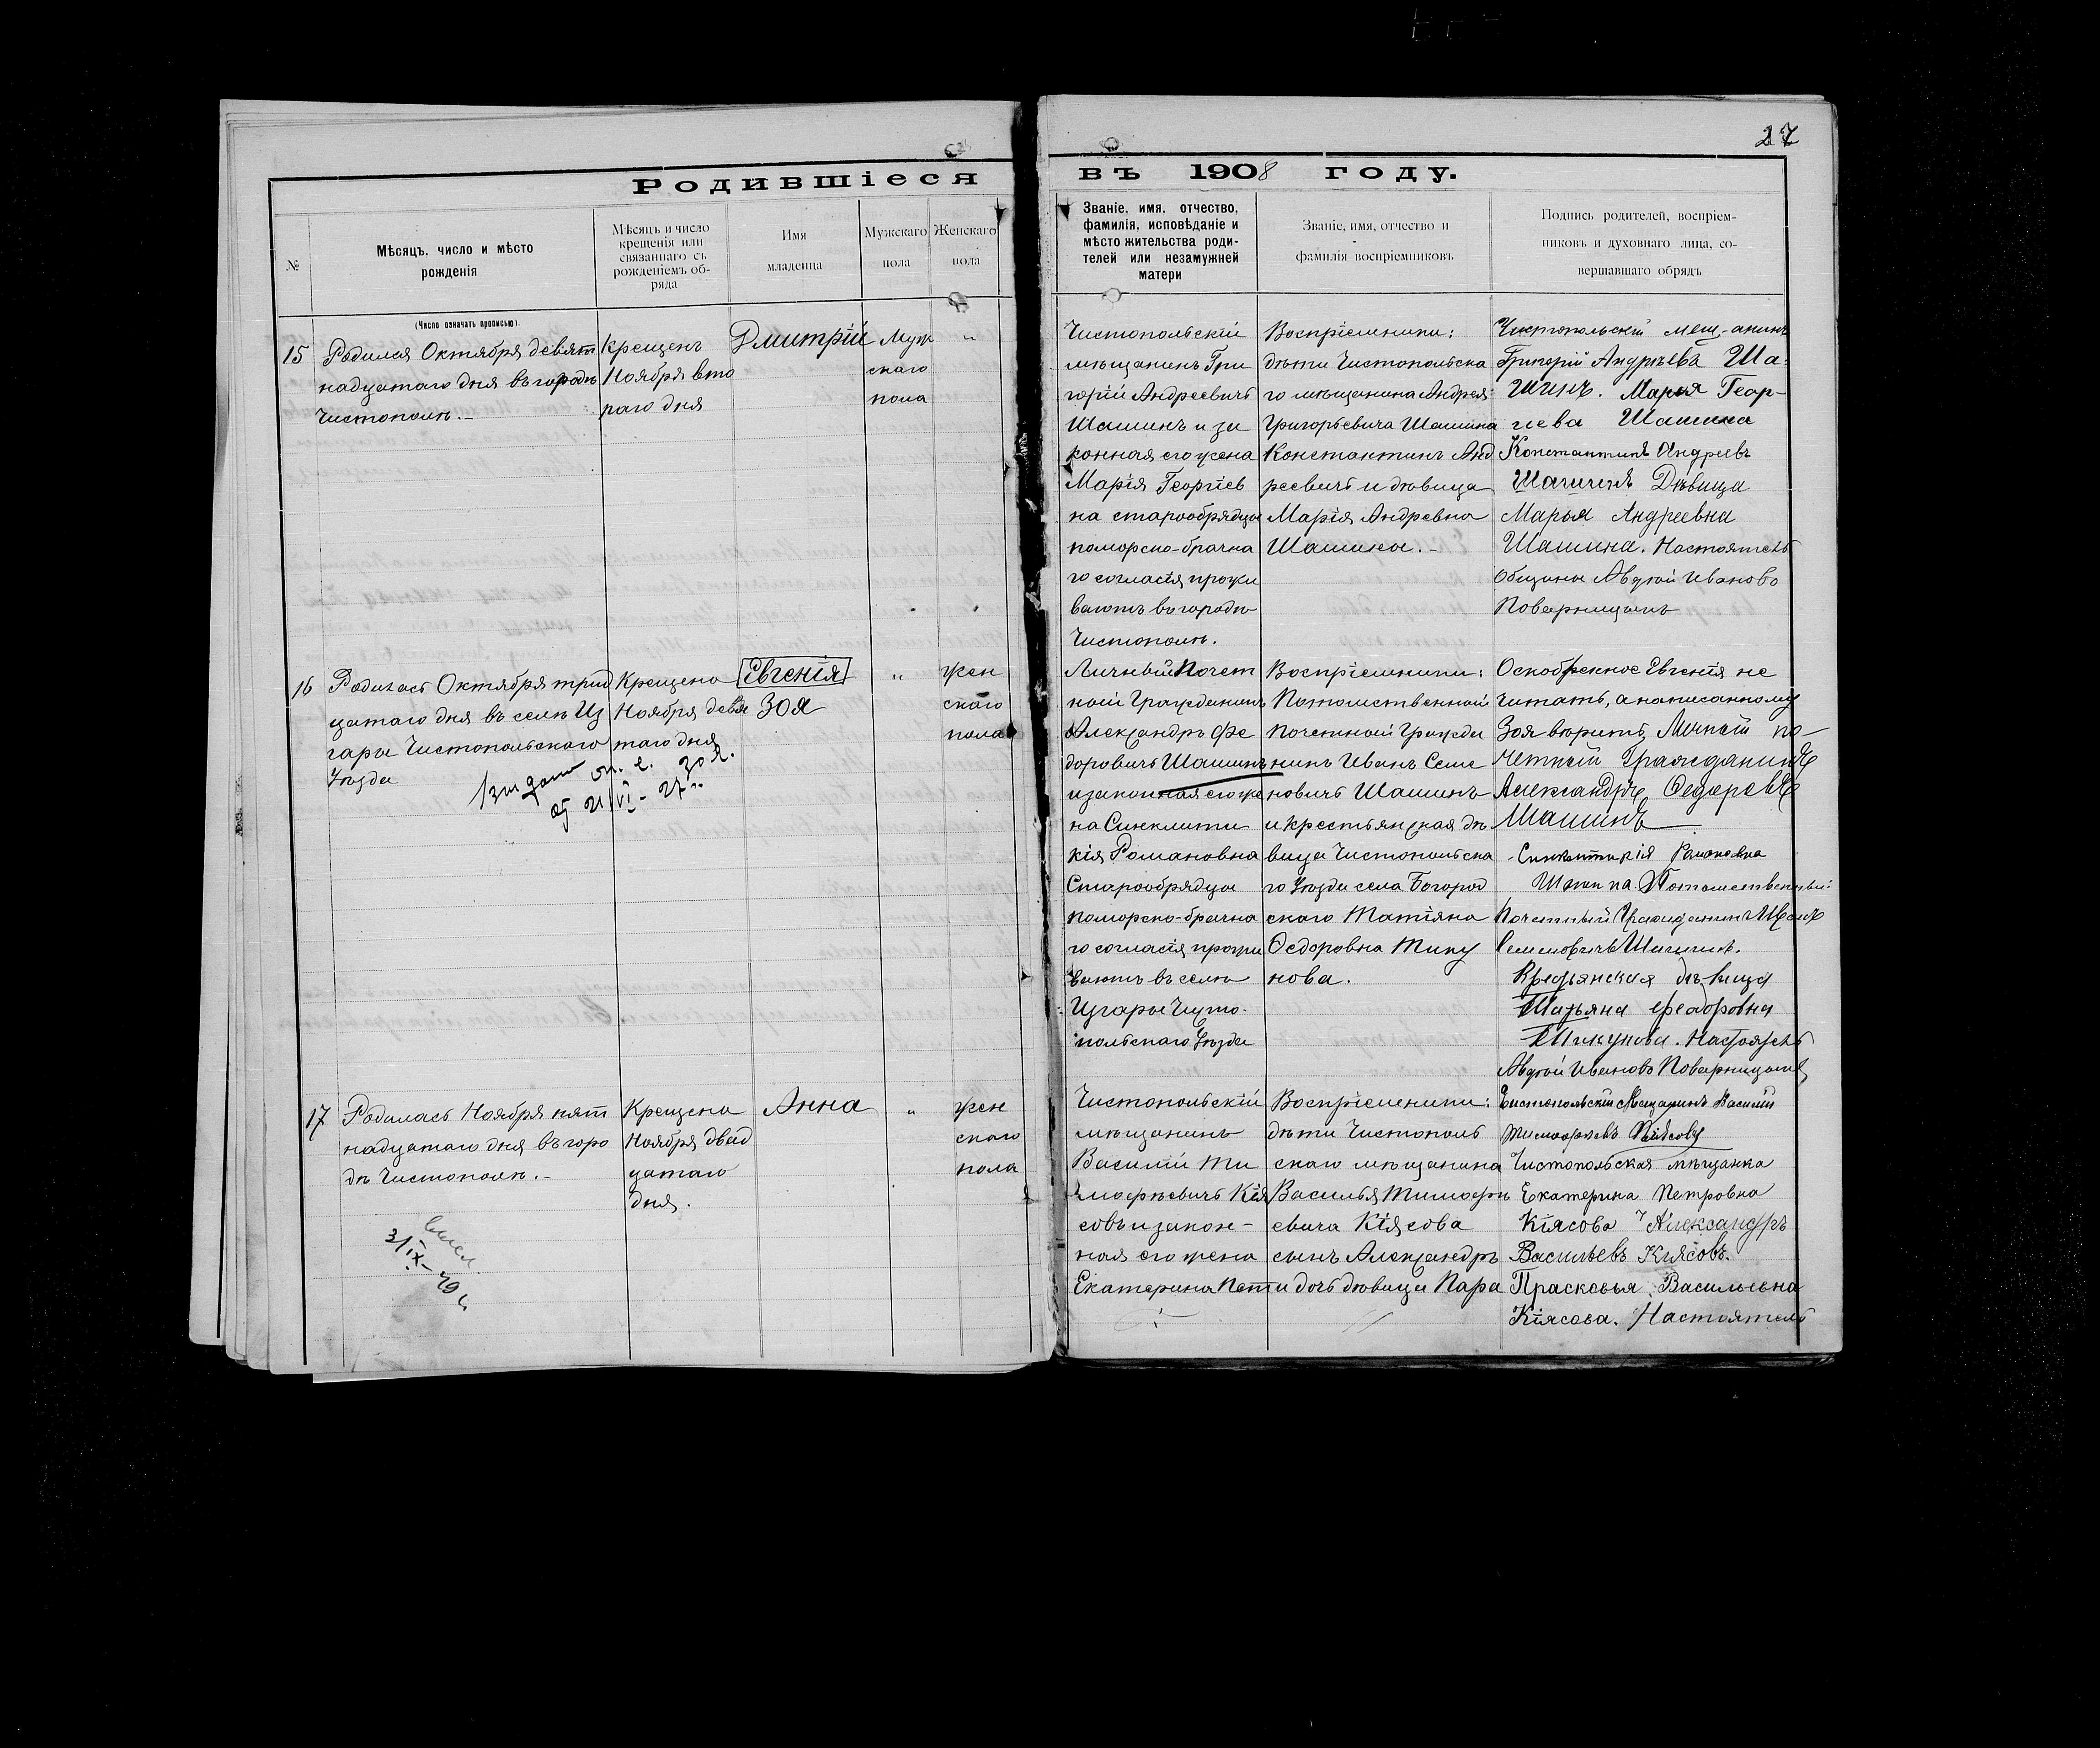 27
Родившіеся въ 1908 году.
№
Мѣсяцъ, число и мѣсто
рожденія
Мѣсяцъ и число
крещенія или
связаннаго съ
рожденіемъ об-
ряда
Имя
младенца
Мужскаго
пола
Женскаго
пола
Званіе, имя, отчество,
фамилія, исповѣданіе и
мѣсто жительства роди-
телей или незамужней
матери
Званіе, имя, отчество и
фамилія воспріемниковъ
Подпись родителей, воспріем-
никовъ и духовнаго лица, со-
вершавшаго обрядъ
(Число означать прописью).
15
Родился Октября девят
надцатаго дня въ городѣ
Чистополѣ.-
Крещенъ
Ноября вто
раго дня
Дмитрій
Муж
скаго
пола
"
Чистопольскій
мѣщанинъ Гри
горій Андреевичъ
Шашинъ и за
конная его жена
Марія Георгіев
на старообрядцы
поморско-брачна
го согласія прожи
ваютъ въ городѣ
Чистополѣ.
Воспріемники:
дѣти Чистопольска
го мѣщанина Андрея
Григорьевича Шашина
Константинъ Анд
реевичъ и дѣвица
Марія Андревна
Шашины.-
Чистопольскій мещ-анинъ
Григорій Андрѣевъ Ша-
шинъ. Марья Геор-
гіева Шашина
Константинъ Андреевъ
Шашинъ Дѣвица
Марья Андреевна
Шашина. Настоятель
Общины Авдѣй Ивановъ
Поварницынъ
16
Родилась Октября трид
цатаго дня въ селѣ Из
гары Чистопольскаго
Уѣзда
Крещена
Ноября девя
таго дня
Евгенія
Зоя
"
Жен
скаго
пола
Зоя.
Личный Почет
ный Гражданинъ
Александръ Фе
доровичъ Шашинъ
и законная его же
на Синклити
кія Романовна
Старообрядцы
поморско-брачна
го согласія прожи
ваютъ въ селѣ
Изгары Чисто-
польскаго Уѣзда
Воспріемники:
Потомственный
почетный Гражда
нинъ Иванъ Семе
новичъ Шашинъ
и крестьянская дѣ
вица Чистопольска
го Уѣзда села Богород
скаго Татіяна
Ѳедоровна Тику
нова.
Оскобленное Евгенія не
читать, а написанному
Зоя вѣрить, Личный по-
четный Гражданинъ
Александръ Ѳедоревъ
Шашинъ
Синклитикія Романовна
Шашина. Потомственный
Почетный Гражданинъ Иванъ
Семеновичъ Шашинъ.
Крестьянская дѣвица
Татьяна Феадоровна
Тикунова. Настоятель
Авдѣй Ивановъ Поварницынъ
17
Родилась Ноября пят
надцатаго дня въ горо
дѣ Чистополѣ.-
Крещена
Ноября двад
цатаго
дня.
Анна
"
Жен
скаго
пола
Чистопольскій
мѣщанинъ
Василій Ти
мофѣевичъ Кія
совъ и закон-
ная его жена
Екатерина Пет
Воспріемники:
дѣти Чистополь
скаго мѣщанина
Василья Тимофѣ
евича Кіясова
сынъ Александръ
и дочь дѣвица Пара
Чистопольскій Мещанинъ Василій
Тимофѣевъ Кіясовъ
Чистопольская мѣщанка
Екатерина Петровна
Кіясова Александръ
Васильевъ Кіясовъ.
Прасковья Васильевна
Кіясова. Настоятель